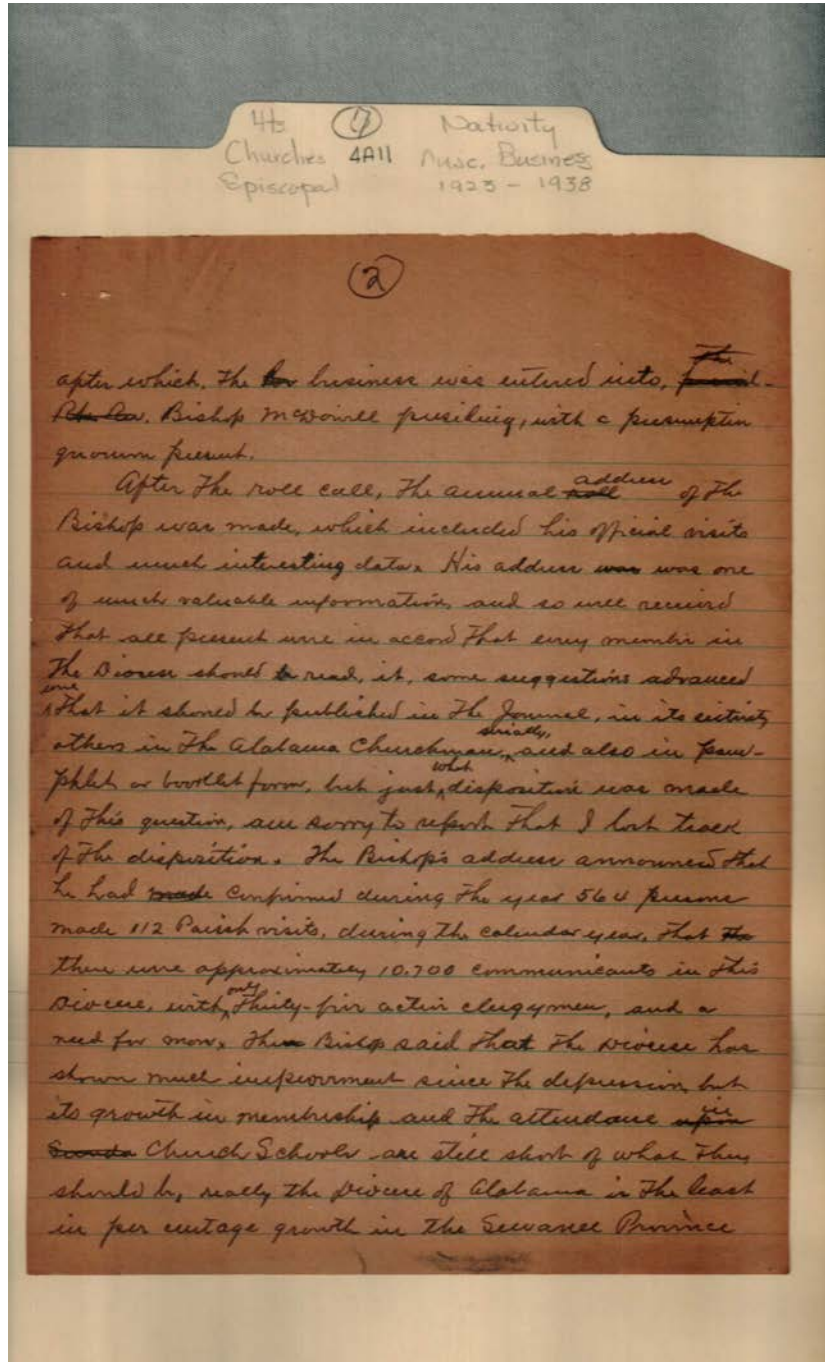 4ts (7) Nativity
Churches 4A11 Misc. Business
Episcopal 1923 - 1938
(2)
The
after which, The business was entered into,
Bishop McDowell presiding, with a presumptin
quorum present.
address
After The roll call, The annual roll of The
Bishop was made, which included his official visits
and much interesting data. His address was was one
of much valuable information, and so well received
That all present were in accord That every member in
The Diocese should b read, it, some suggestions advanced
some
That it should be published in The Journal, in its entirety
serially,
others in The Alabama Churchman, and also in pam-
what
phlet or booklet form, but just disposition was made
of This question, am sorry to report That I lost track
of The disposition. The Bishop's address announced that
he had made confirmed during The year 564 persons
made 112 Parish visits, during the calendar year, That The
there were approximately 10.700 communicants in This
only
Diocese, with Thirty-five active clergymen, and a
need for more. The Bishop said That The Diocese has
shown much improvement since The depression, but
in
its growth in membership and The attendance upon
Church Schools are still short of what They
should be, really the Diocese of Alabama is The least
in per centage growth in the Sewanee Province